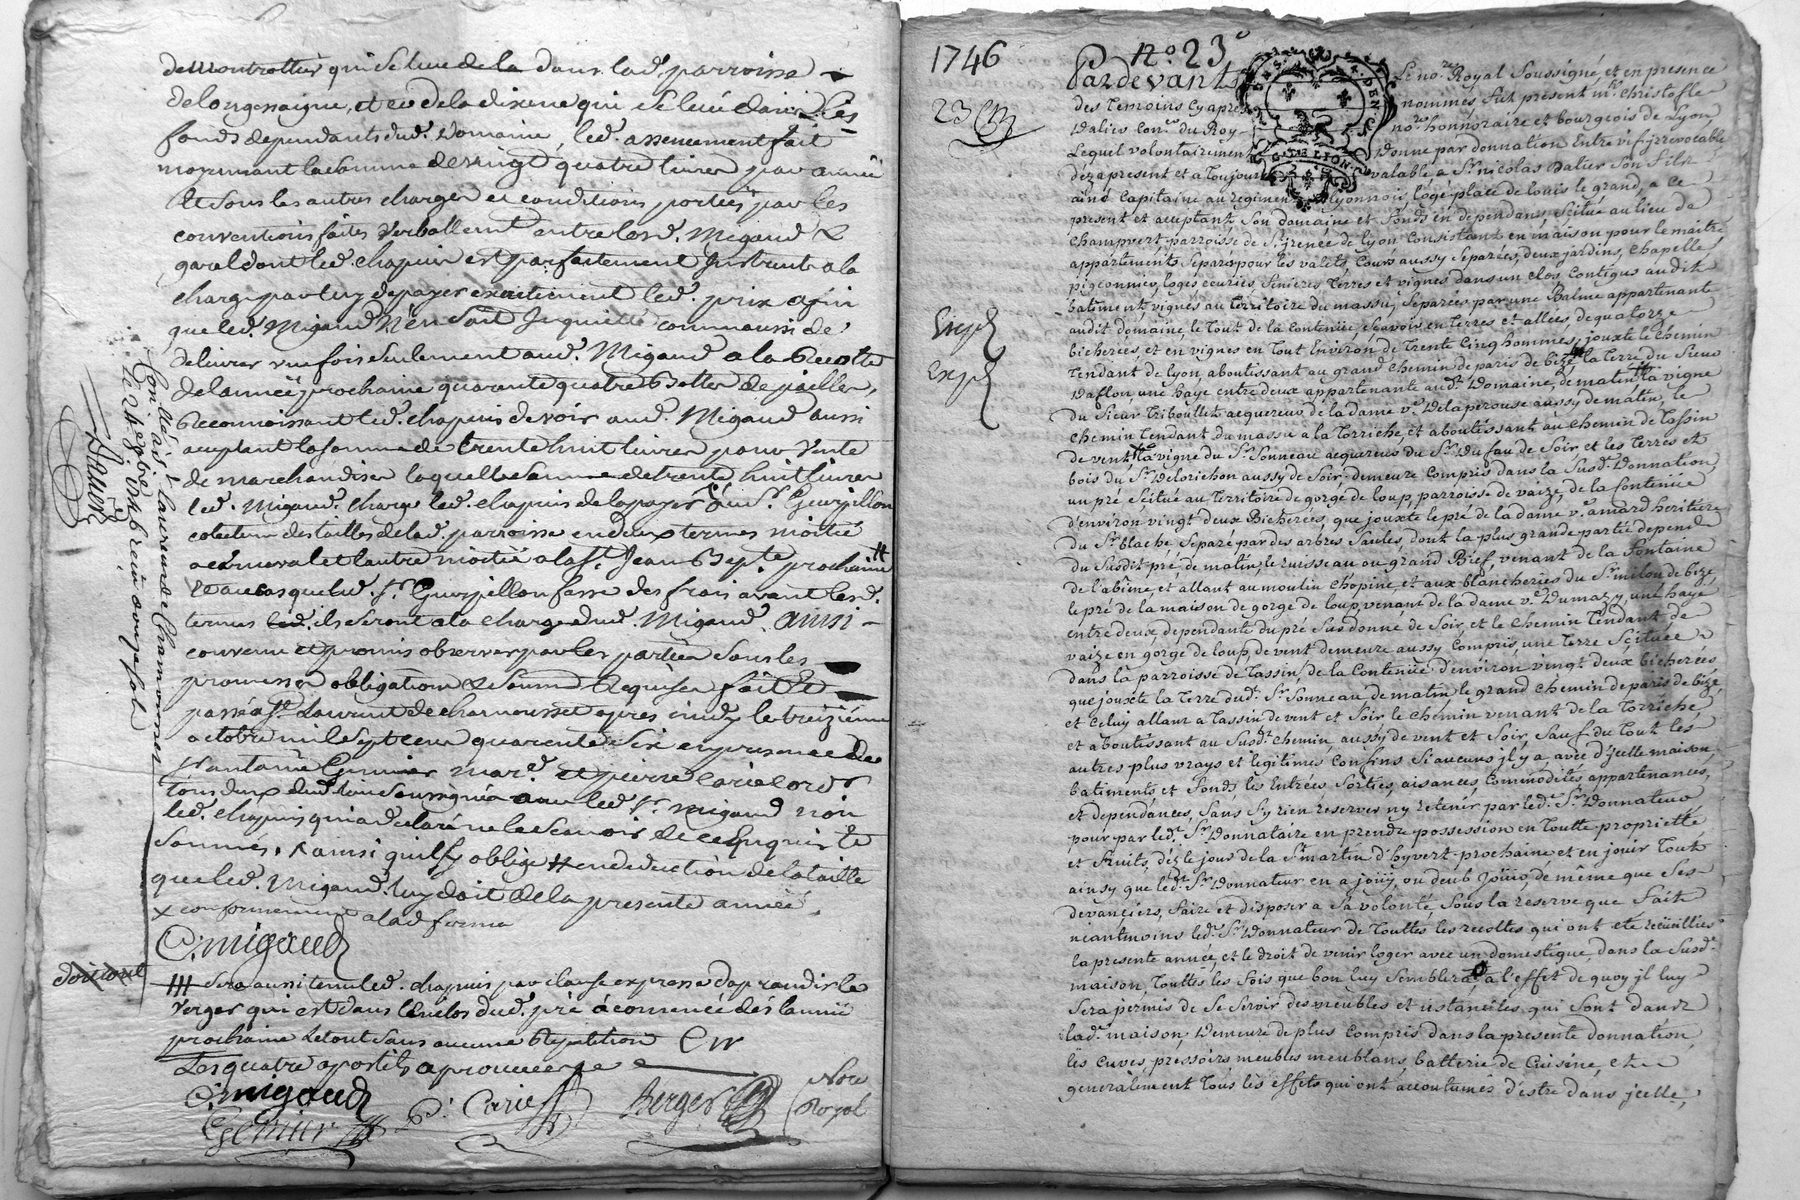 de la dans lad. parroisse
de longesaigne, et de la dixme qui se leve dans les
fonds dependants dud. domaine, led. assencement fait
moyennant la somme de vingt quatre livres par année
et sous les autres charges et conditions portées par les
conventions faites verballement entre lesd. Migaud &
dont led. chapuis est parfaitement instruit a la
charge par luy de payer led. prix afin
que led. Migaud n'en soit inquietté comm'aussi de
delivrer une fois seulement aud. Migaud a la recolte
de l'année prochaine quarente quatre bottes de pailler,
Reconnoissant led. chapuis devoir aud. Migaud aussi
acceptant la somme de trente huit livres pour vente
de marchandises laquelle somme de trente huit livres
led. Migaud charge led. chapuis de la payer au Sr. Guerpillon
colecteur des tailles de lad. parroisse en deux termes moitié
a carnaval et l'autre moitié a la St. Jean Bapte. prochaine
et au cas que led. Sr. Guerpillon fasse des frais avant lesd.
termes ils seront a la charge dud. Migaud. ainsi
convenu et promis observer par les parties sous les
promesses obligations & requises fait et
passé a St. Laurent de chamousset apres midy le treizieme
octobre mil sept cent quarente six en presence de
Sr antoine Grenier mard. et pierre carie
tous deux dud. lieu soussignés avec led. Sr. Migaud non
led. chapuis qui a declaré ne le scavoir de ce enquis et
sommés, x ainsi qu'il s'y oblige # en deduction de la taille
que led. Migaud luy doit de la presente année,
x conformement a lad ferme
C. migaud
/// sera aussi tenu led. chapuis par clause expresse d'aprandir le
verger qui est dans l'enclos dud. pré a commencé dès l'année
prochaine le tout sans aucune repetition
Les quatre apostils approuvées
C. migaud P. Carie Berger Nore
Royal
Conllé a St. Laurent de Chamousset
le 24 8bre 1746 reçu douze sols
1746
23
Expd
Expd
No. 23e
GNALITE LYON
Pardevant Le nore. Royal Soussigné, et en presence
des temoins cy apres nommés fut présent mr. Christofle
Dalier Coner. du Roy nore. honnoraire et bourgeois de Lyon
Lequel volontairement donne par donnation Entre vifs irrevocable
dez a present et a Toujours valable a Sr. nicolas Dalier Son fils
ainé Capitaine au regiment Lyonnois, logé place de louis le grand, a ce
present et acceptant Son domaine et fonds en dépendans Scitué au lieu de
Champvert parroisse de St. jrenée de lyon Consistant en maison pour le maitre
appartements Separés pour les valets, Cours aussy Separées, deux jardins, Chapelle
pigeonnier, loges ecuries, feniéres Terres et vignes dans un clos, Contigus audit
batiment, vignes au Territoire du massu, Separées par une Balme appartenante
audit domaine, le Tout de la Contenüe, Scavoir en Terres et allées, de quatorze
bicherées, et en vignes en Tout Environ de Trente Cinq hommes, jouxte le Chemin
Tendant de Lyon, aboutissant au grand Chemin de paris de bize, la Terre du Sieur
Daflon, une haye entre deux appartenante aud. Domaine, de matin, la vigne
du Sieur Triboullet acquereur de la dame ve. Delaperouse aussy de matin, le
Chemin Tendant du massu a la Torriche, et aboutissant au Chemin de Tassin
de vent, la vigne du Sr. Sonneau acquereur du Sr. Dufau de Soir, et les Terres et
bois du Sr. Delorichon aussy de Soir, demeure Compris dans la Susd. Donnation
un pré Scitué au Territoire de gorge de loup, parroisse de vaize, de la Contenüe
d'environ vingt deux Bicherées, que jouxte le pré de la dame ve. amard heritiere
du Sr. blache Separé par des arbres Saules, dont la plus grande partie depend
du Susdit pré, de matin, le ruisseau ou grand Bief, venant de la fontaine
de l'abime, et allant au moulin Chopine, et aux blancheries du Sr. milou de bize,
le pré de la maison de gorge de loup, venant de la dame ve. Dumazy, une haye
entre deux dependante du pré Susdonné de Soir, et le Chemin Tendant de
vaize en gorge de loup, de vent, demeure aussy Compris, une Terre Scituée
dans la parroisse de Tassin, de la Contenüe d'environ vingt deux bicherées
que jouxte la Terre dud. Sr. Sonneau de matin, le grand Chemin de paris de bize
et Celuy allant a Tassin de vent, et Soir, le Chemin venant de la Torriche
et aboutissant au Susdt. Chemin, aussy de vent et Soir, Sauf du Tout les
autres plus vrays et legitimes Confins Si aucuns jl y a, avec d'jcelle maison
batiments et fonds, les Entrées, Sorties, aisances, Commodités appartenances,
et dependances, Sans Sy rien reserver ny retenir, par led. Sr. Donnateur
pour par led. Sr. Donnataire en prendre possession en Toutte proprietté
et fruits, dèz le jour de la St. martin d'hyvert prochaine et en jouir Tout
ainsy que led. Sr. Donnateur en a joüy, ou deub Joüir, de meme que Ses
devanciers, faire et disposer a Sa volonté, Sous la reserve que fait
néantmoins led. Sr. Donnateur de Touttes les recoltes qui ont eté recüeillies
la presente année, et le droit de venir loger avec un domestique, dans la Susd.
maison, Touttes les fois que bon luy Semblera, a l'effet de quoy jl luy
Sera permis de Se Servir des meubles et ustanciles qui Sont dans
lad. maison, Demeure de plus Compris dans la presente donnation
les Cuves, pressoirs meubles meublans, batterie de Cuisine, et
generalement Tous les effets qui ont accoutumés d'estre dans jcelle,